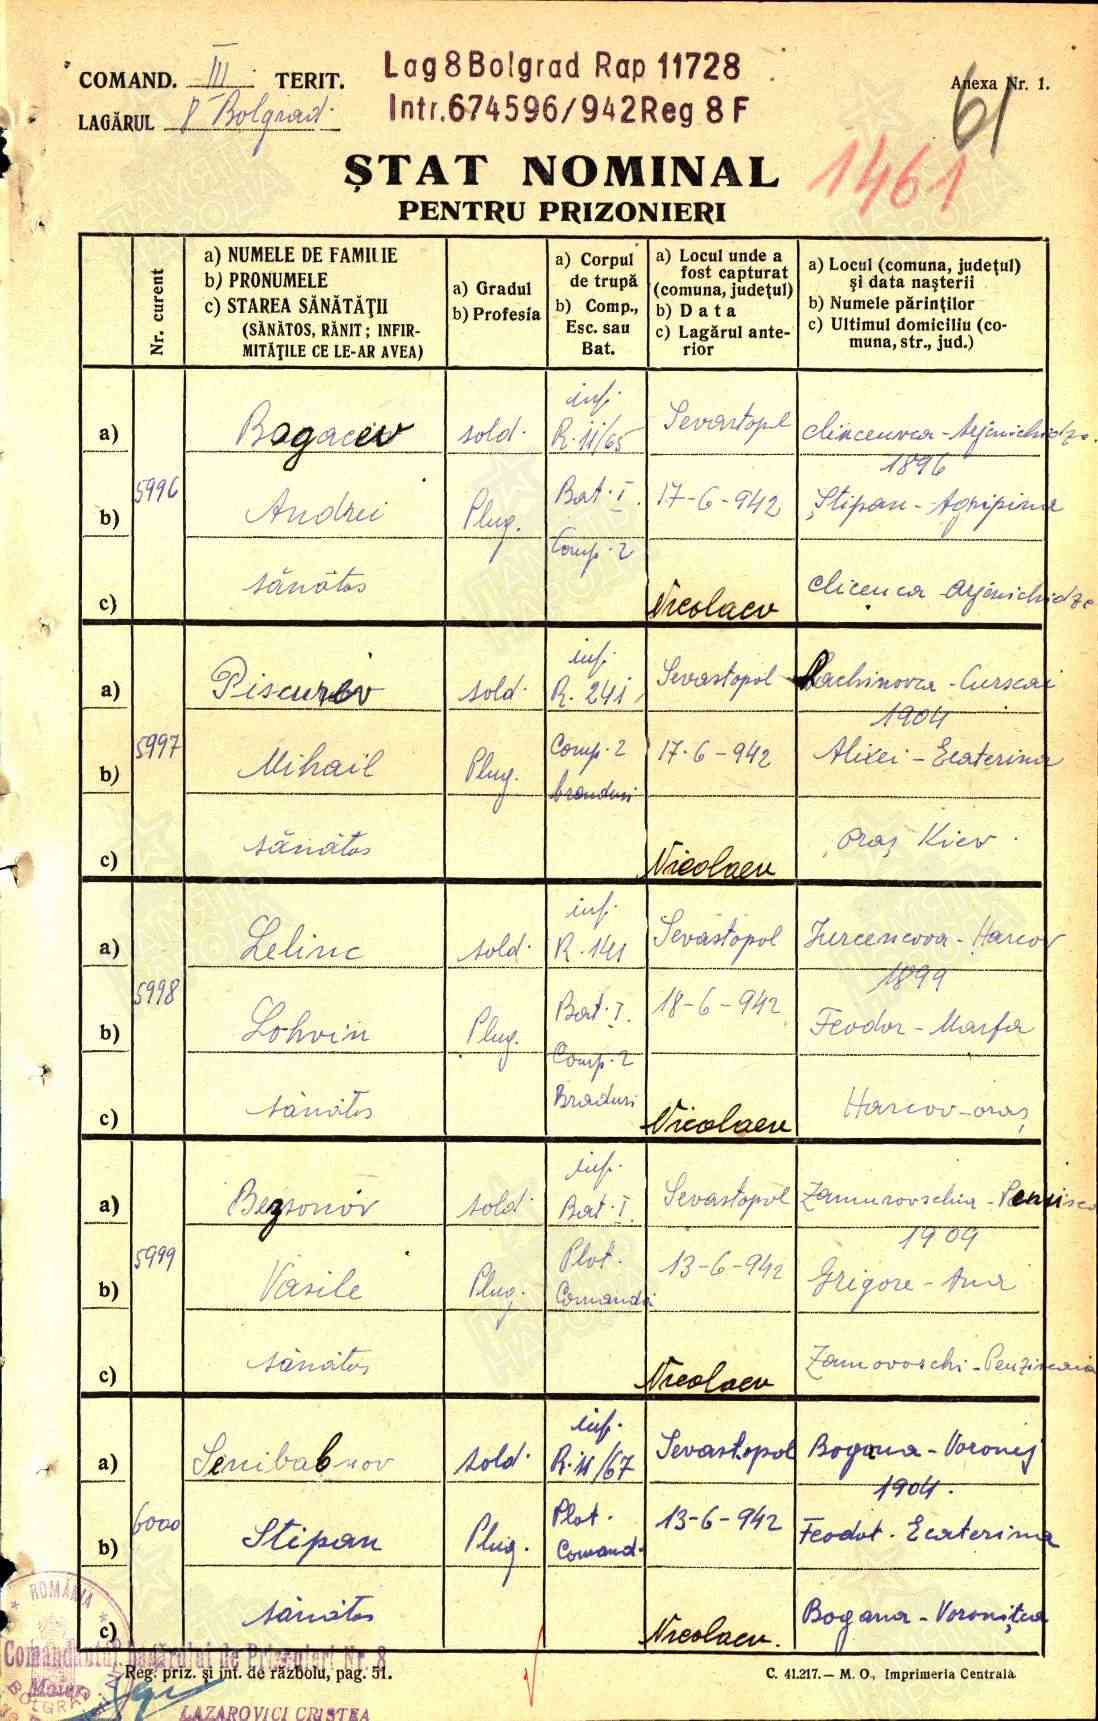 COMAND. III TERIT.
LAGĂRUL 8 Bolgrad.
Lag 8 Bolgrad Rap 11728
Intr. 674596/942 Reg 8 F
Anexa Nr. 1.
61
1461
ȘTAT NOMINAL
PENTRU PRIZONIERI
Nr. curent
a) NUMELE DE FAMILIE
b) PRONUMELE
c) STAREA SĂNĂTĂȚII
(SĂNĂTOS, RĂNIT; INFIR-
MITĂȚILE CE LE-AR AVEA)
a) Gradul
b) Profesia
a) Corpul
de trupă
b) Comp.,
Esc. sau
Bat.
a) Locul unde a
fost capturat
(comuna, județul)
b) Data
c) Lagărul ante-
rior
a) Locul (comuna, județul)
și data nașterii
b) Numele părinților
c) Ultimul domiciliu (co-
muna, str., jud.)
5996
a) Bagacev sold. inf. R. 11/65 Sevastopl
1896
b) Andrei Plug. Bat. I. 17-6-942 Știpan - Agripina
Comp. 2
c) sănătos Nicolaev
5997
a) Piscurev sold. inf. R. 241 Sevastopol Rachinovca - Curscai
1904
b) Mihail Plug. Comp. 2 17-6-942 Alixei - Ecaterina
c) sănătos Nicolaev oraș Kiev.
5998
a) Lelinc sold. inf. R. 141 Sevastopol Jurcencova - Harcov
1899
b) Lohvin Plug. Bat. I. 18-6-942 Feodor - Marfa
Comp. 2
c) sănătos Braduri Nicolaev Harcov - oraș
5999
a) Bezsonov sold inf. Bat. I. Sevastopol
1909
b) Vasile Plug. Plot. Comandă 13-6-942 Grigore - Ana
c) sănătos Nicolaev Zamovoschi - Penziscaia
6000
a) Senibabnov sold. inf. R. 11/67 Sevastopol Bogana - Voronej
1904.
b) Stipan Plug. Plot. Comand. 13-6-942 Feodot. Ecaterina
c) sănătos Nicolaev. Bogana - Voronițca
ROMÂNIA
Comandantul Lagărului de Prizonieri Nr. 8
Maior
BOLGRAD
LAZAROVICI CRISTEA
Reg. priz. și int. de războiu, pag. 51.
C. 41.217.— M. O., Imprimeria Centrală
ПАМЯТЬ НАРОДА